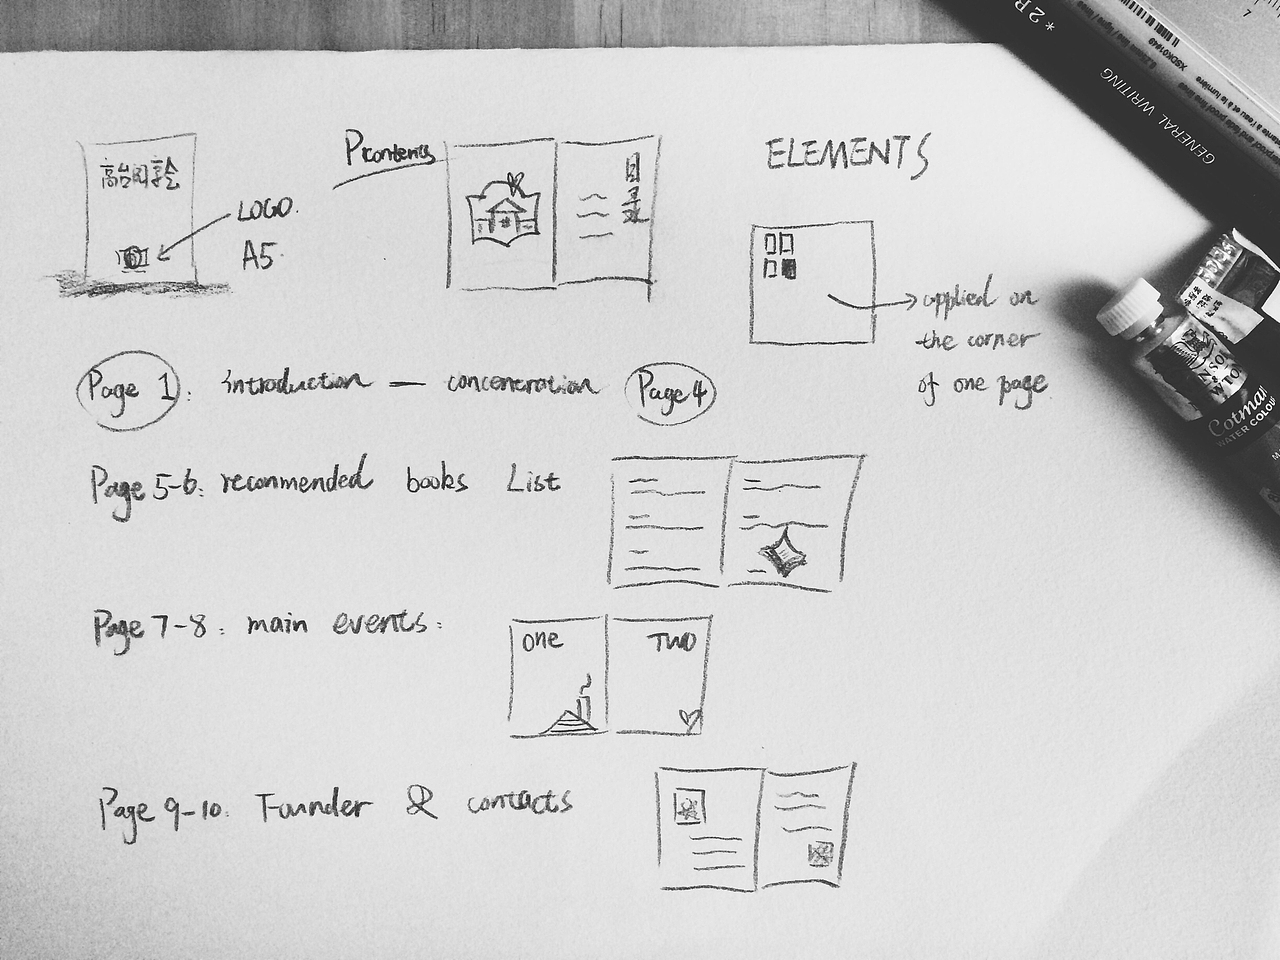 LOGO.
A5.
Pcontents
目
录
ELEMENTS
applied on
the corner
of one page.
Page 1: introduction — concentration Page 4
Page 5-6: recommended books List
Page 7-8: main events:
one
TWO
Page 9-10: Founder & contacts
* 2 B
GENERAL WRITING
XSDK01949
7
Cotman
WATER COLOU